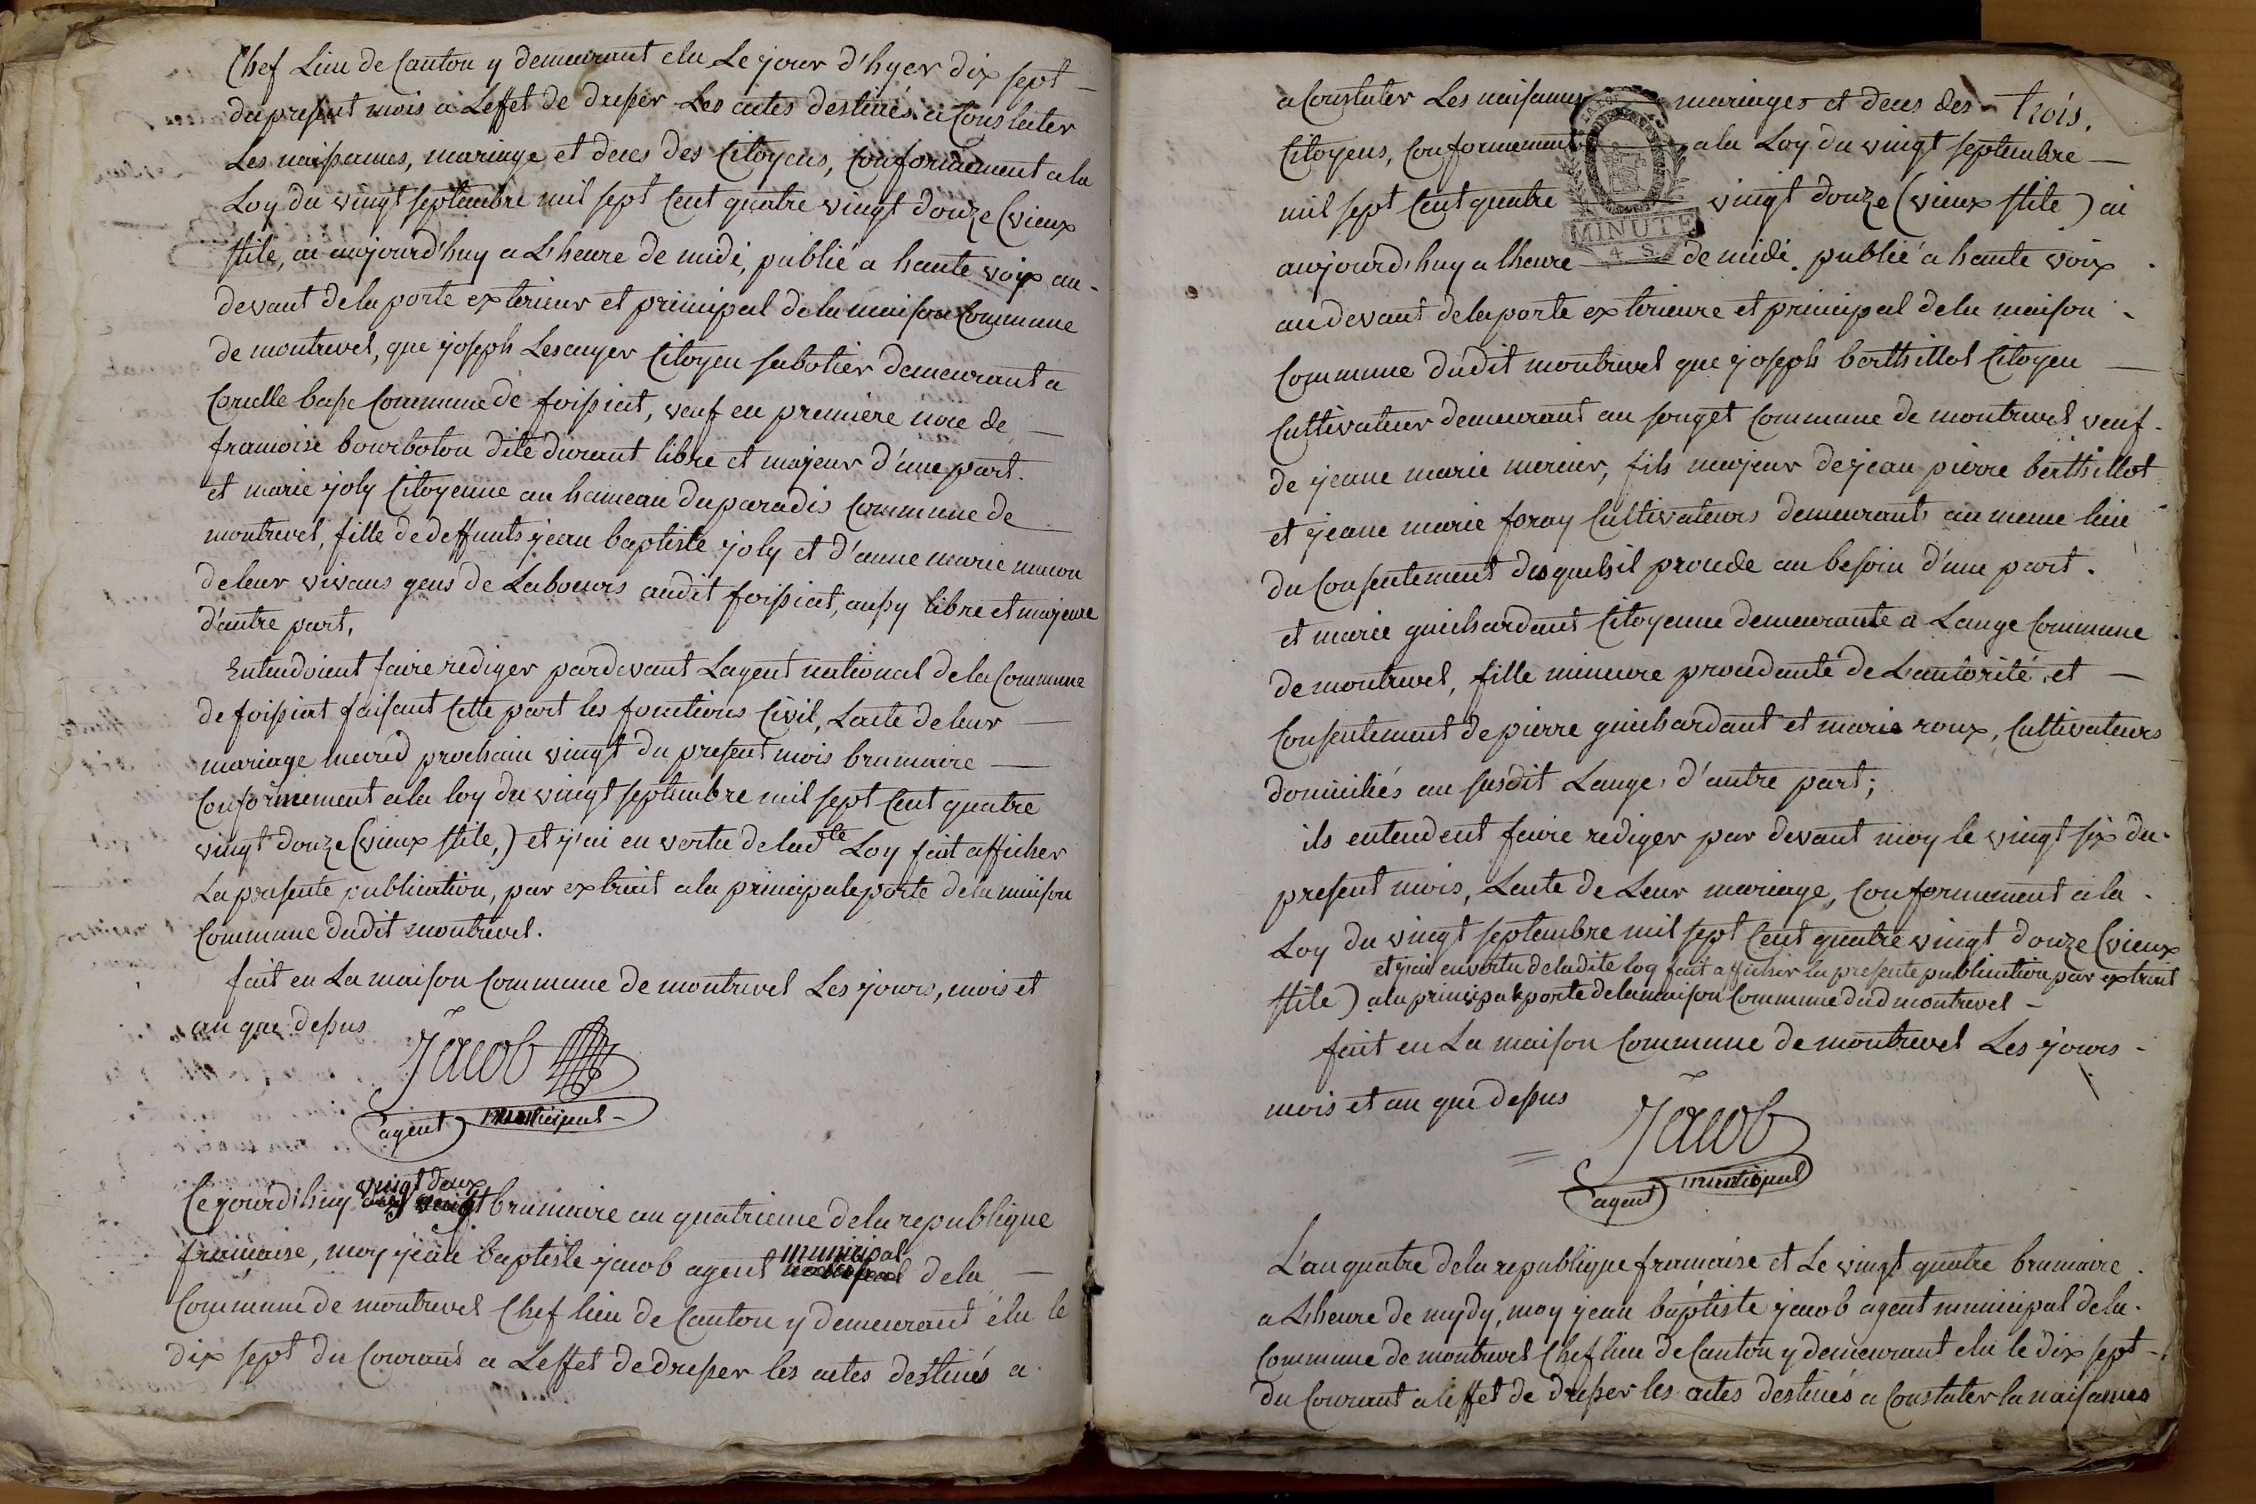 Chef Lieu de Canton y demeurant elu Le jour d'hyer dix sept
du present mois a Leffet de dresser Les actes destinés a Constater
Les naissances, mariage et deces des Citoyens, Conformement a la
Loy du vingt septembre mil sept Cent quatre vingt douze (vieux
stile, ai aujourd'huy a L'heure de midi, publié a haute voix au-
devant de la porte exterieur et principal de la maison Commune
de montrevel, que joseph Lescuyer Citoyen sabotier demeurant a
Cornelle basse Commune de foissiat, veuf en premiere noce de
francoise bourboton dite durant libre et majeur d'une part.
et marie joly Citoyenne au hameau du paradis Commune de
montrevel, fille de deffunts jean baptiste joly et d'anne marie macon
de leur vivans gens de Labours audit foissiat, aussy libre et majeure
d'autre part,
Entendoient faire rediger pardevant Lagent national de la Commune
de foissiat faisant Cette part les fonctions Civil, Lacte de leur
mariage mecred prochain vingt du present mois brumaire
Conformement a la loy du vingt septembre mil sept Cent quatre
vingt douze (vieux stile,) et j'ai en vertu de lad.te Loy fait afficher
La presente publication, par extrait a la principale porte de la maison
Commune dudit montrevel.
fait en La maison Commune de montrevel Les jours, mois et
an que dessus
Jacob
agent municipal
Cejourd'huy vingt deux brumaire an quatrieme de la republique
francaise, moy jean baptiste jacob agent municipal de la
Commune de montrevel Chef lieu de Canton y demeurant élu le
dix sept du Courant a Leffet de dresser les actes destinés a
a Constater Les naissances mariages et deces des trois.
Citoyens, Conformement a la Loy du vingt septembre
mil sept Cent quatre vingt douze (vieux stile) ai
MINUTE
4 S.
aujourd'huy a lheure de midi. publié a haute voix
au devant de la porte exterieure et principal de la maison
Commune dudit montrevel que joseph berthillot Citoyen
Cultivateur demeurant au souget Commune de montrevel veuf
de jeanne marie mercier, fils majeur de jean pierre berthillot
et jeane marie foray Cultivateurs demeurants au meme lieu
du Consentement desquels il procede au besoin d'une part.
et marie guichardant Citoyenne demeurante a Lange Commune
de montrevel, fille mineure procedante de L'autorité et
Consentement de pierre guichardant et marie roux, Cultivateurs
domiciliés au susdit Lange, d'autre part;
ils entendent faire rediger par devant moy le vingt six du
present mois, Lacte de Leur mariage, Conformement a la
Loy du vingt septembre mil sept Cent quatre vingt douze (vieux
et j'ai en vertu de ladite loy fait afficher la presente publication par extrait
stile) a la principale porte de la maison Commune dud montrevel
fait en La maison Commune de montrevel Les jours
mois et an que dessus
Jacob
agent municipal
L'an quatre de la republique francaise et Le vingt quatre brumaire
a L'heure de mydy, moy jean baptiste jacob agent municipal de la
Commune de montrevel Chef lieu de Canton y demeurant elu le dix sept
du Courant a leffet de dresser les actes destinés a Constater la naissances